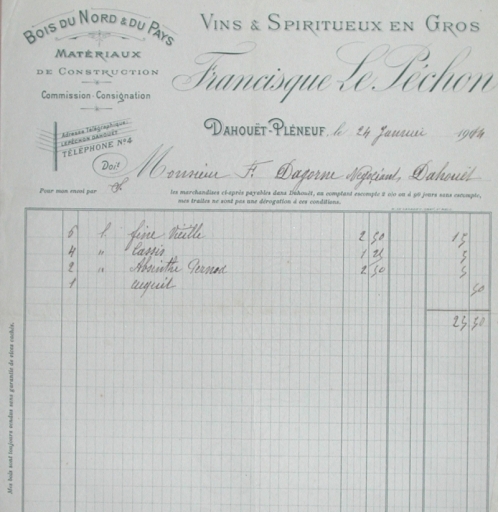 Bois du Nord & du Pays
Matériaux
de Construction
Commission - Consignation
Vins & Spiritueux en Gros
Francisque Le Péchon
Adresse Télégraphique:
LEPÉCHON DAHOUËT
TÉLÉPHONE Nº 4
Dahouët-Pléneuf, le 24 Janvier 1914
Doit
Monsieur F. Dagorne Négociant, Dahouët
Pour mon envoi par
les marchandises ci-après payables dans Dahouët, au comptant escompte 2 o/o ou à 90 jours sans escompte,
mes traites ne sont pas une dérogation à ces conditions.
l. fine Vieille 2 50 15
4 " Cassis 1 25 5
2 " Absinthe Pernod 2 50 5
1 50
25,50
Mes bois sont toujours vendus sans garantie de vices cachés.